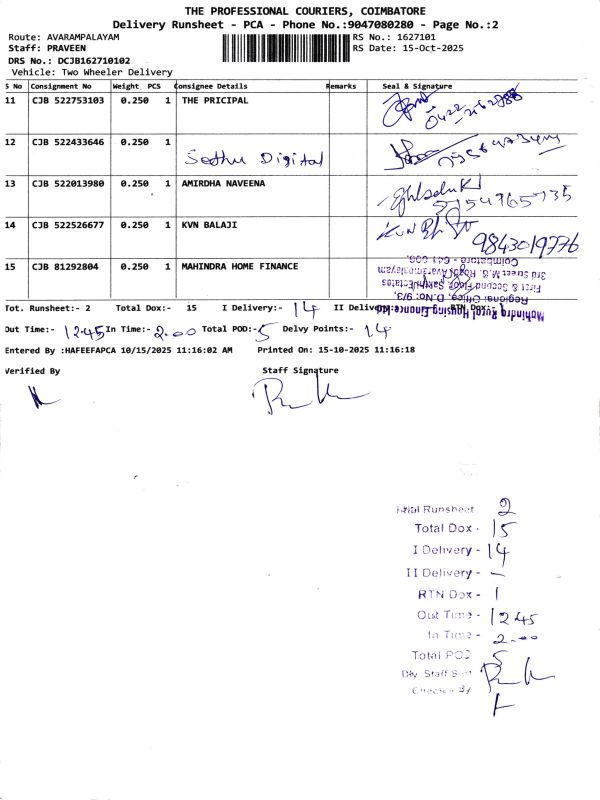 THE PROFESSIONAL COURIERS, COIMBATORE
Delivery Runsheet - PCA - Phone No.:9047080280 - Page No.:2
Route: AVARAMPALAYAM RS No.: 1627101
Staff: PRAVEEN RS Date: 15-Oct-2025
DRS No.: DCJB162710102
Vehicle: Two Wheeler Delivery
S No Consignment No Weight PCS Consignee Details Remarks Seal & Signature
11 CJB 522753103 0.250 1 THE PRICIPAL
12 CJB 522433646 0.250 1 Sethu Digital
13 CJB 522013980 0.250 1 AMIRDHA NAVEENA
14 CJB 522526677 0.250 1 KVN BALAJI 9843019776
15 CJB 81292804 0.250 1 MAHINDRA HOME FINANCE
Mahindra Rural Housing Finance Ltd.
Regional Office, D.No: 9/3,
First & Second Floor, Sakthi Estates
3rd Street M.G. Road, Avarampalayam
Coimbatore - 641 006.
Tot. Runsheet:- 2 Total Dox:- 15 I Delivery:- 14 II Delivery:- RTN Dox:-
Out Time:- 12.45 In Time:- 2.00 Total POD:- 5 Delvy Points:- 14
Entered By :HAFEEFAPCA 10/15/2025 11:16:02 AM Printed On: 15-10-2025 11:16:18
Verified By Staff Signature
Total Runsheet 2
Total Dox - 15
I Delivery - 14
II Delivery - —
RTN Dox - 1
Out Time - 1245
In Time - 2.00
Total POD 5
Dly. Staff Sign
Checked By